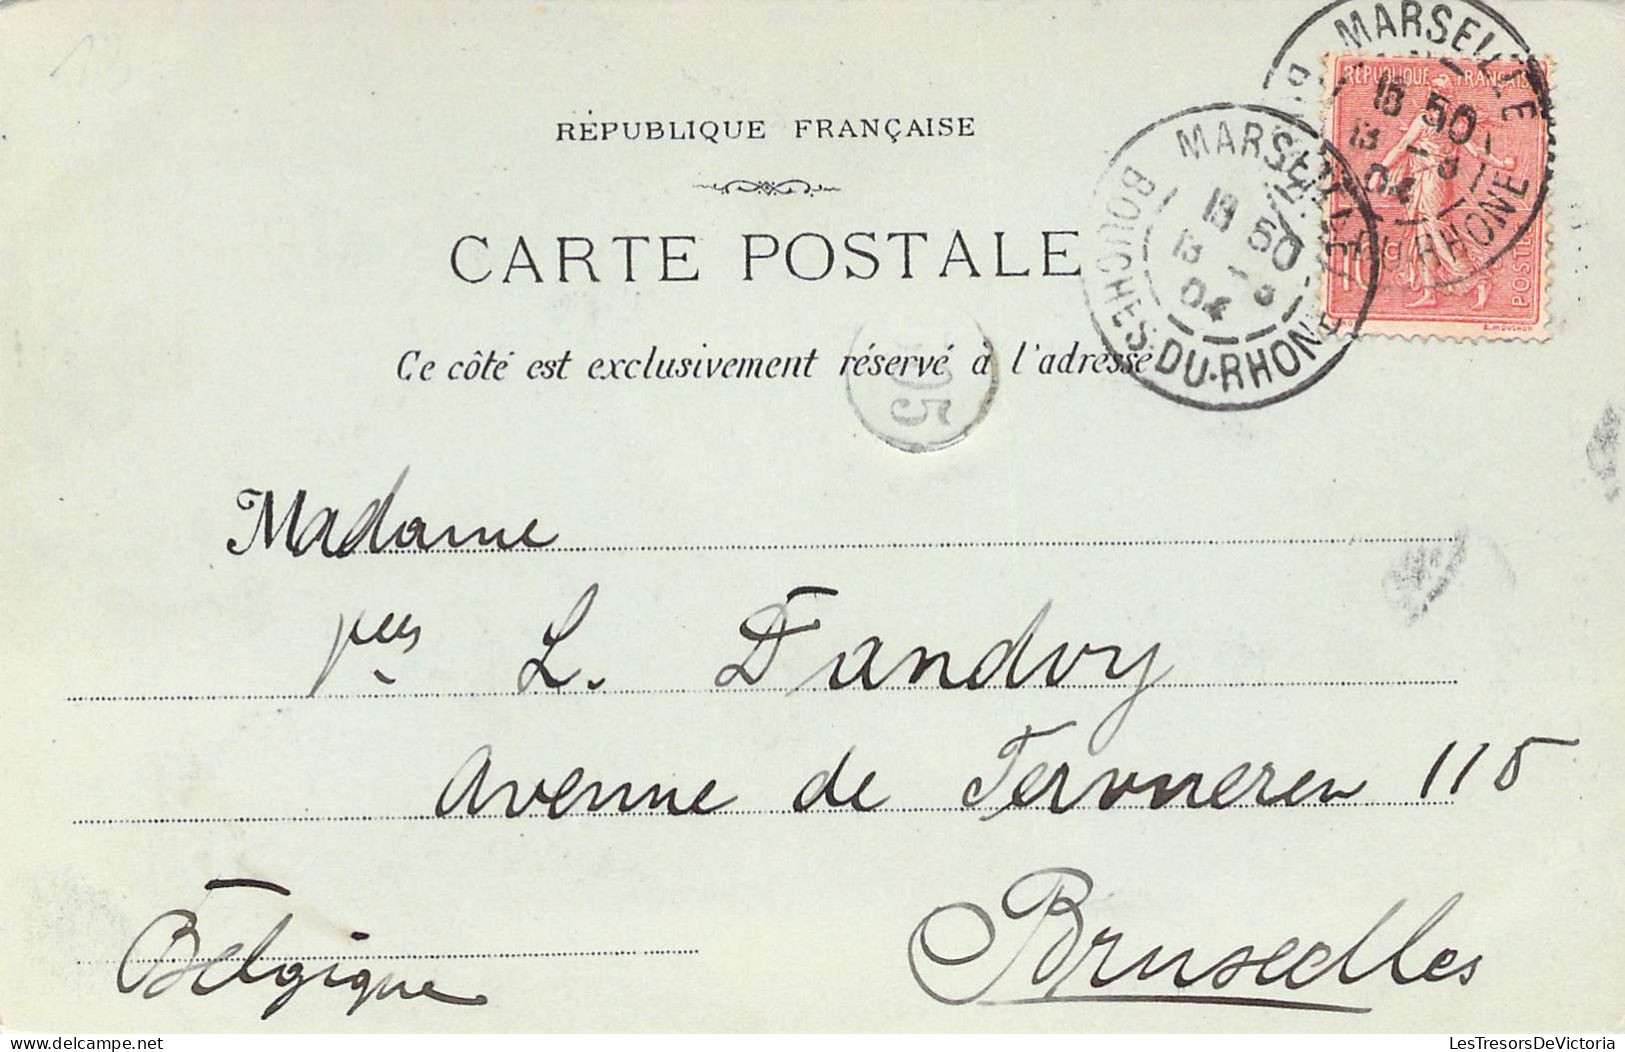 13
RÉPUBLIQUE FRANÇAISE
CARTE POSTALE
Ce côté est exclusivement réservé à l'adresse
MARSEILLE
13 50
13 - 3
04
RHONE
REPUBLIQUE FRANÇAISE
10c
POSTES
E. MOUCHON
MARSEILLE
13 50
13 - 3
04
BOUCHES-DU-RHONE
Madame
L. Dandoy
Avenue de Tervueren 115
Bruxelles
Belgique
LesTresorsDeVictoria